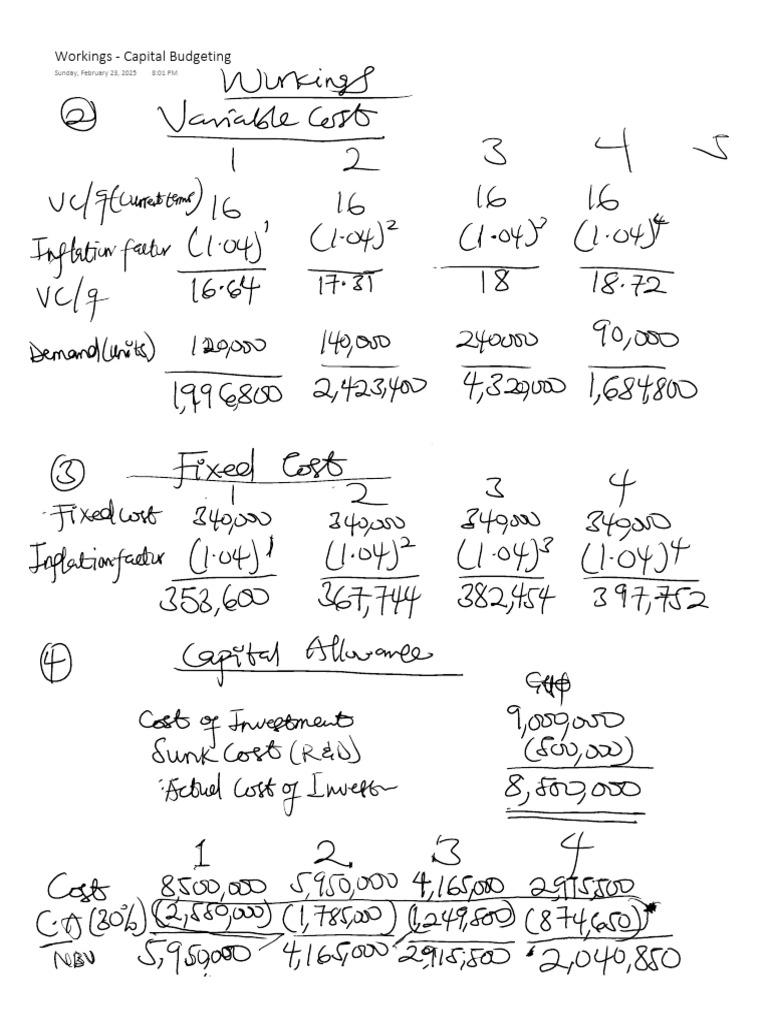 Workings - Capital Budgeting
Sunday, February 23, 2025 8:01 PM
Workings
② Variable Cost
1 2 3 4 5
VC/q (Current terms) 16 16 16 16
Inflation factor (1.04)¹ (1.04)² (1.04)³ (1.04)⁴
VC/q 16.64 17.31 18 18.72
Demand (units) 120,000 140,000 240,000 90,000
1,996,800 2,423,400 4,320,000 1,684,800
③ Fixed Cost
1 2 3 4
Fixed cost 340,000 340,000 340,000 340,000
Inflation factor (1.04)¹ (1.04)² (1.04)³ (1.04)⁴
353,600 367,744 382,454 397,752
④ Capital Allowance
Cost of Investment 9,000,000
Sunk Cost (R&D) (500,000)
Actual Cost of Invest 8,500,000
1 2 3 4
Cost 8,500,000 5,950,000 4,165,000 2,915,500
C.A (30%) (2,550,000) (1,785,000) (1,249,500) (874,650)
NBV 5,950,000 4,165,000 2,915,500 2,040,850